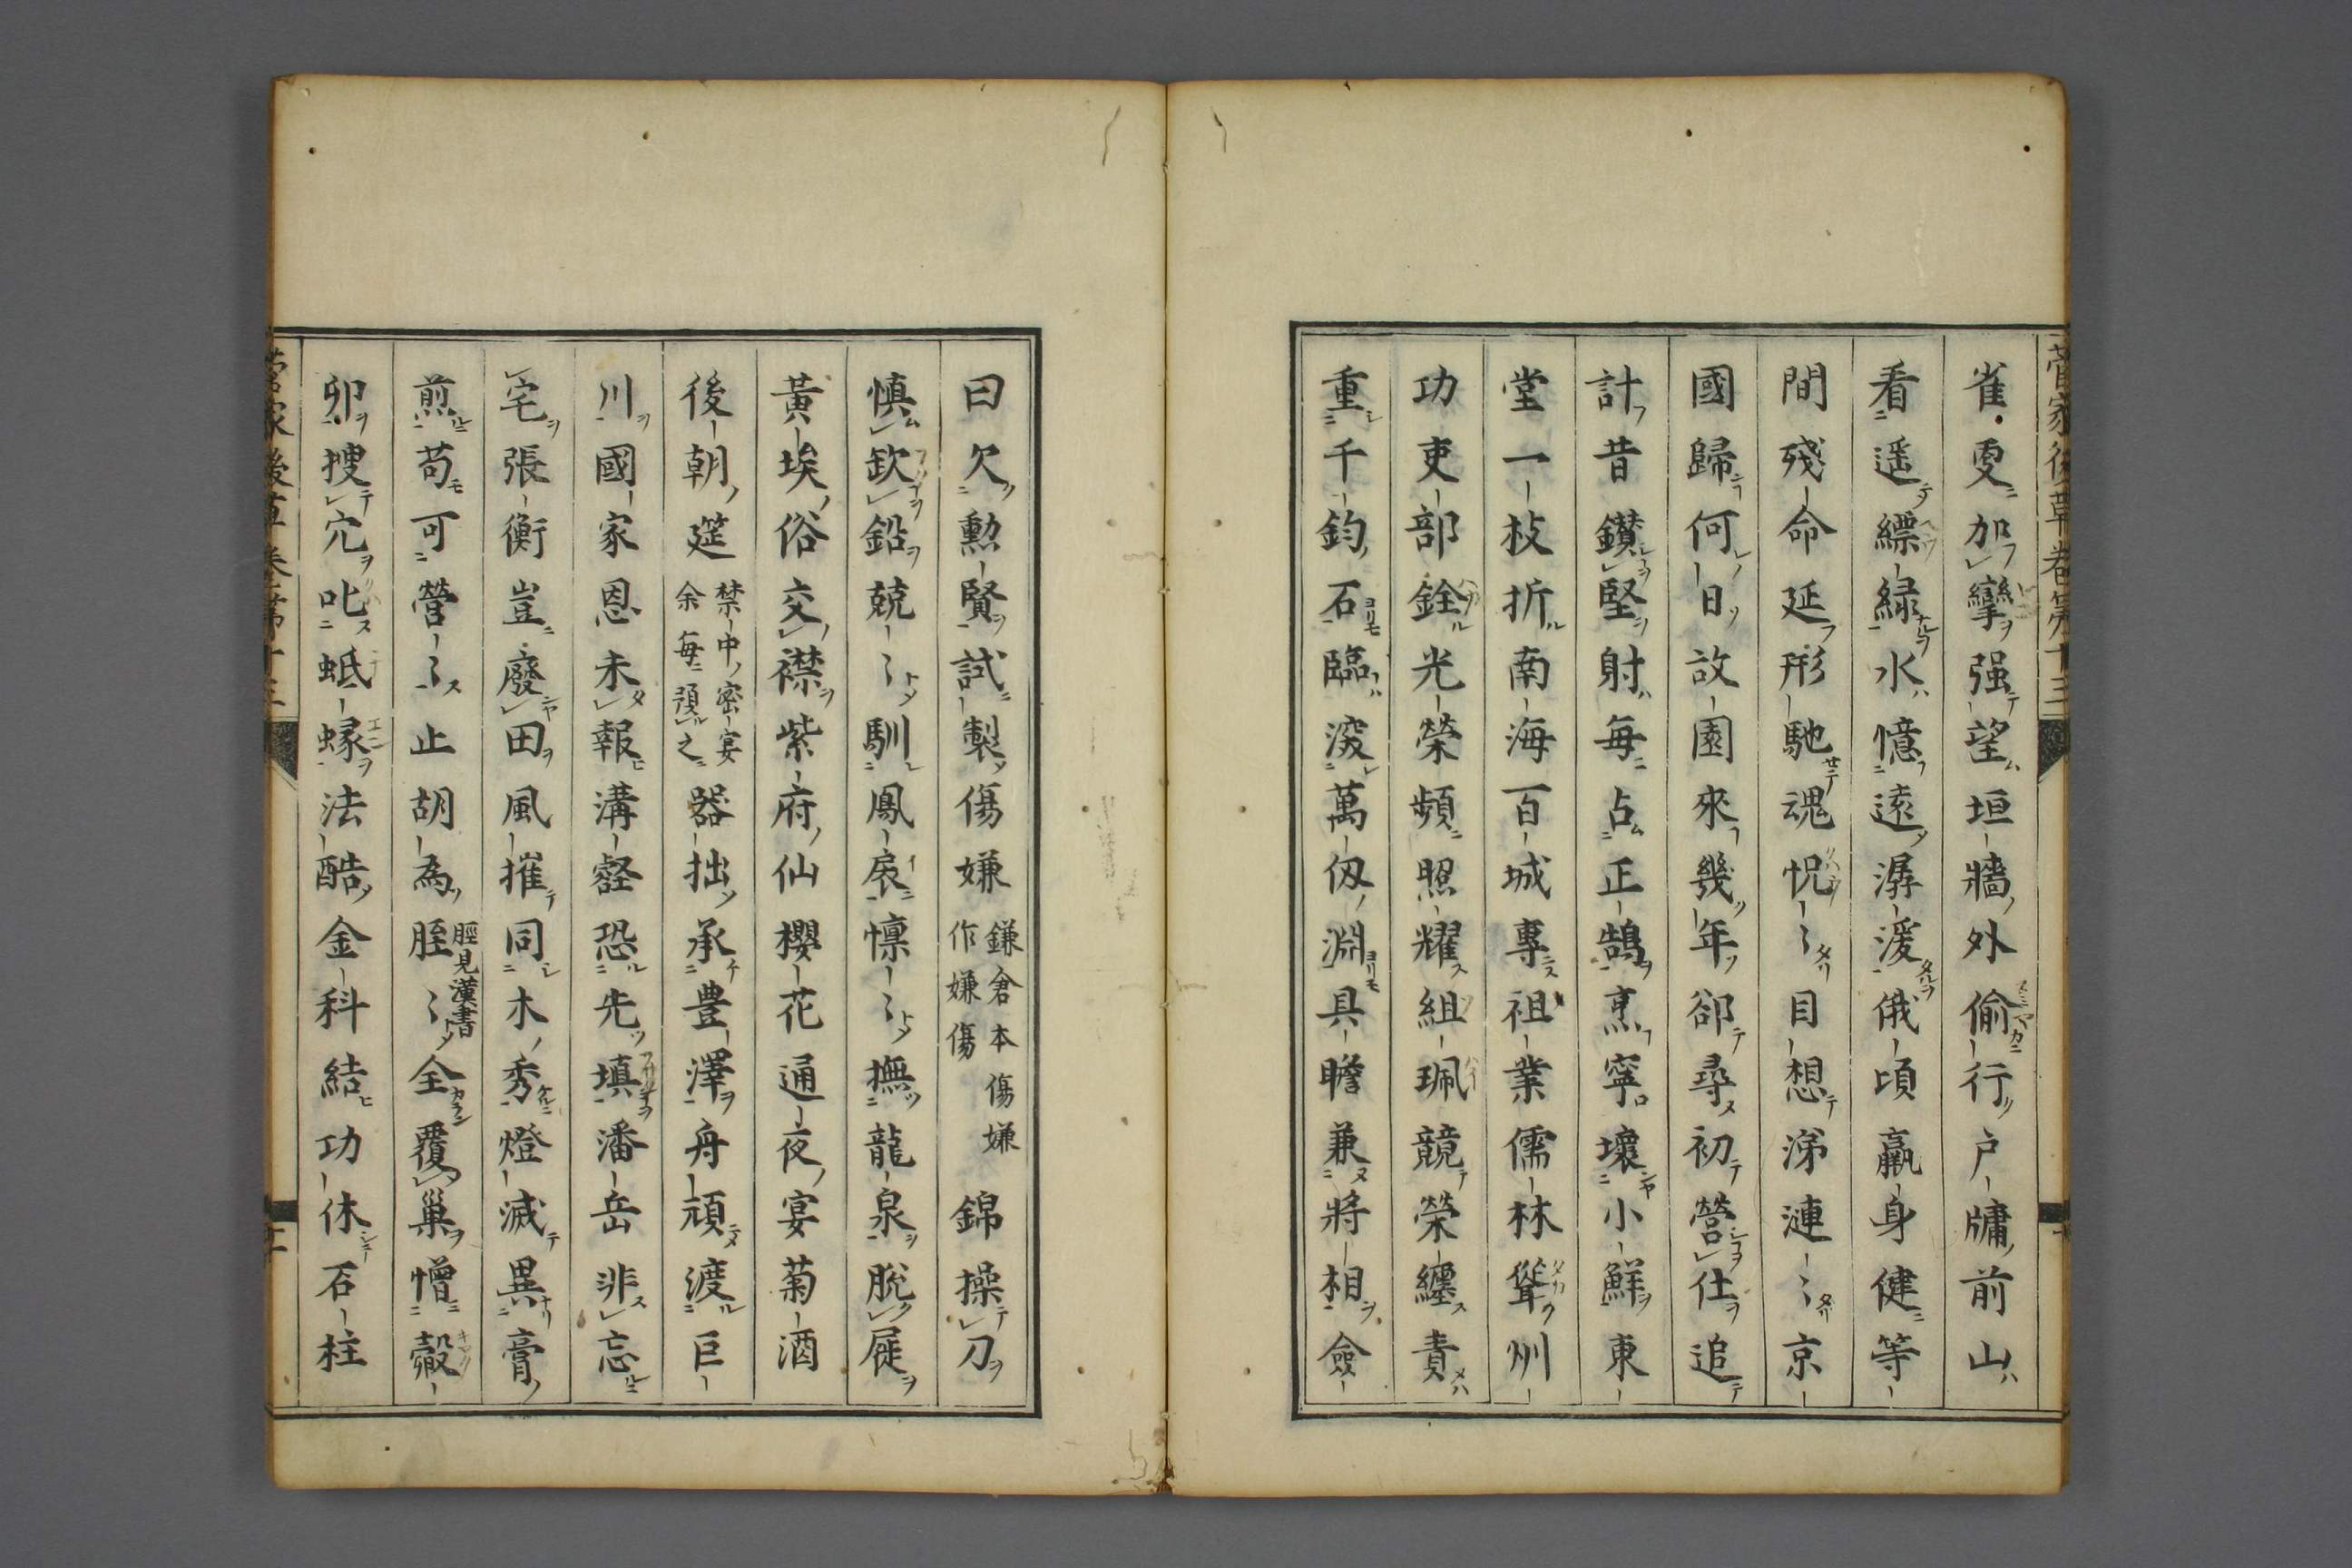 菅家後草卷第十三
雀更加攣强望垣墻外偷行戶牖前山
看遥縹緑水憶遠潺湲俄頃羸身健等
間殘命延形馳魂怳〻目想涕漣〻京
國歸何日故園來幾年卻尋初營仕追
計昔鑚堅射每占正鵠烹寧壞小鮮東
堂一枝折南海百城專祖業儒林聳州
功吏部銓光榮頻照耀組珮競榮纏責
重千鈞石臨深萬仭淵具瞻兼將相僉
曰欠勲賢試製傷嫌鎌倉本傷嫌作嫌傷錦操刀
慎欽鉛兢〻馴鳳扆懍〻撫龍泉脫屣
黃埃俗交襟紫府仙櫻花通夜宴菊酒
後朝筵禁中密宴余每預之器拙承豊澤舟頑渡巨
川國家恩未報溝壑恐先填潘岳非忘
宅張衡豈廢田風摧同木秀燈滅異膏
煎苟可營〻止胡為脛〻脛見漢書全覆巢憎鷇
卵搜穴叱蚳蝝法酷金科結功休石柱
菅家後草卷第十三